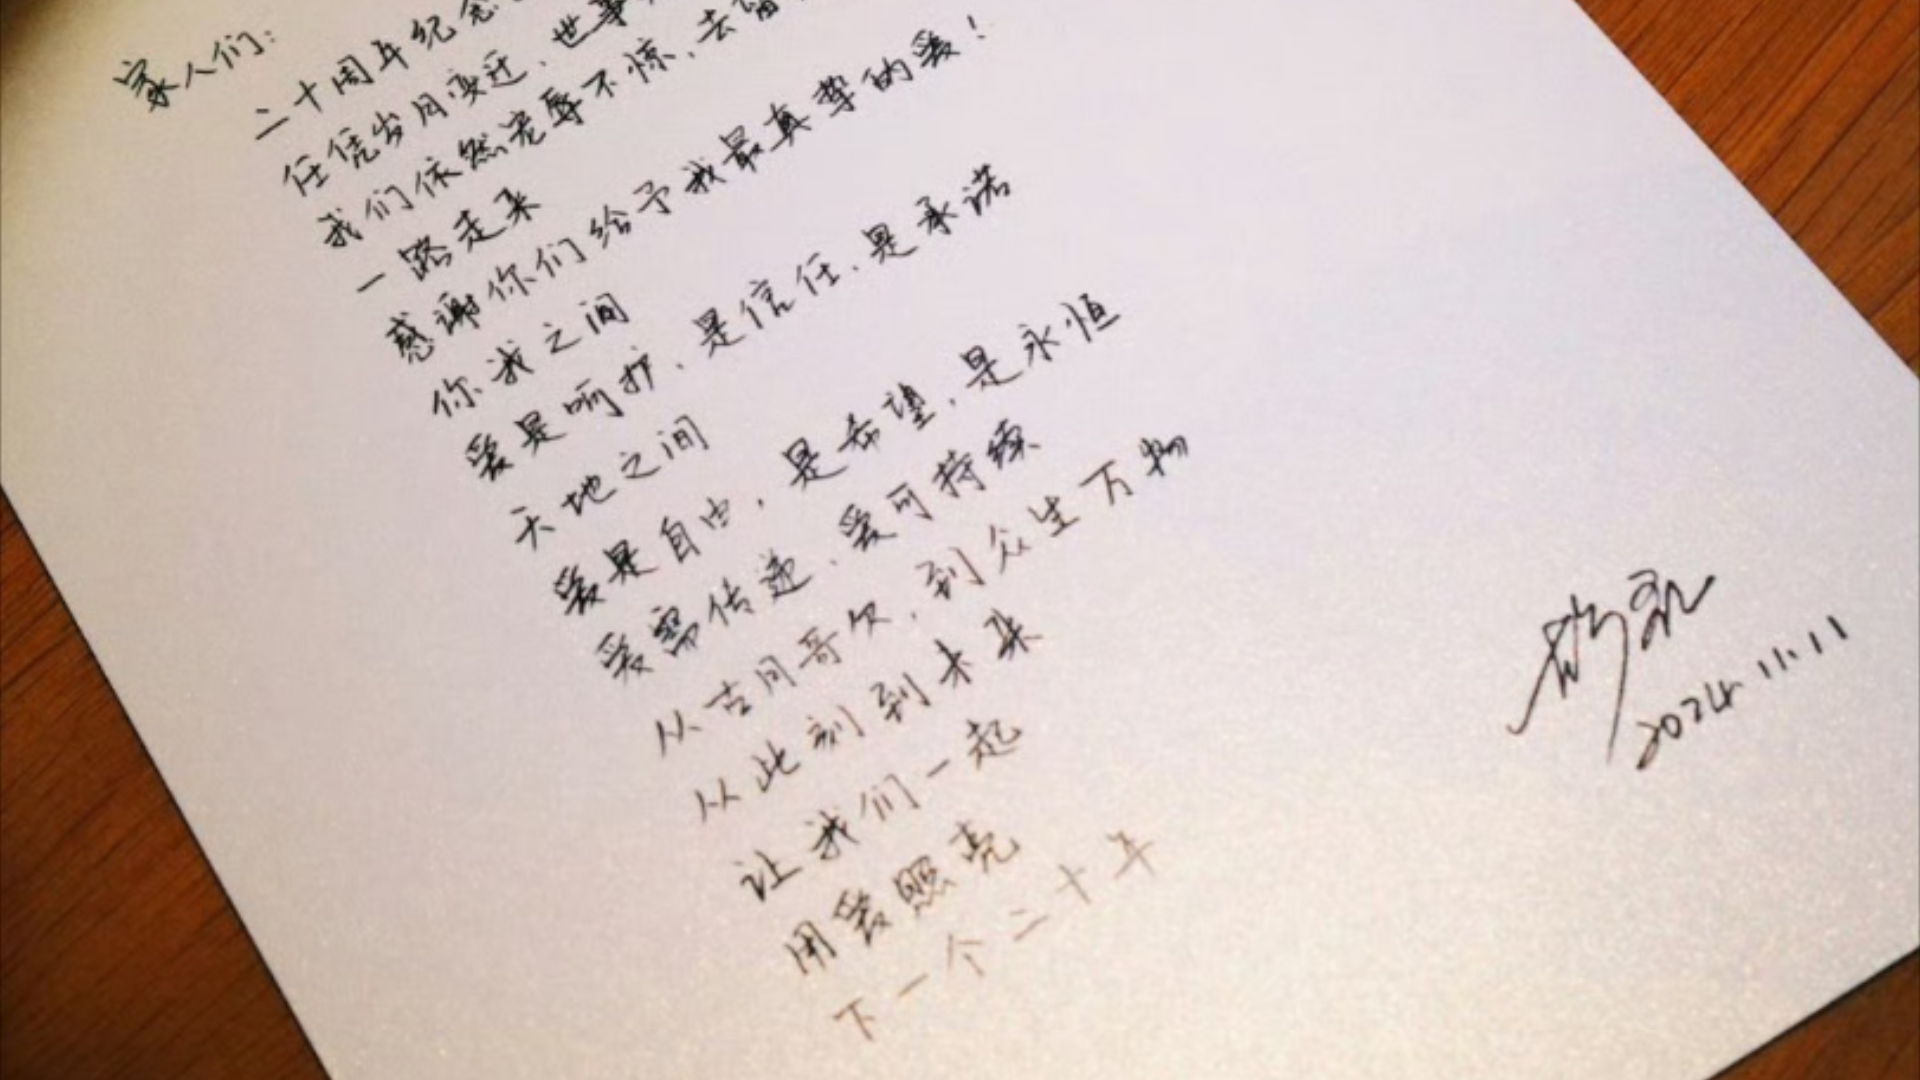 家人们:
二十周年纪念
任凭岁月变迁、世事
我们依然宠辱不惊、去留
一路走来
感谢你们给予我最真挚的爱!
你我之间
爱是呵护、是信任、是承诺
天地之间
爱是自由,是希望,是永恒
爱需传递、爱可持续
从吉间哥欠,到众生万物
从此刻到未来
让我们一起
用爱照亮
下一个二十年
2024.11.11